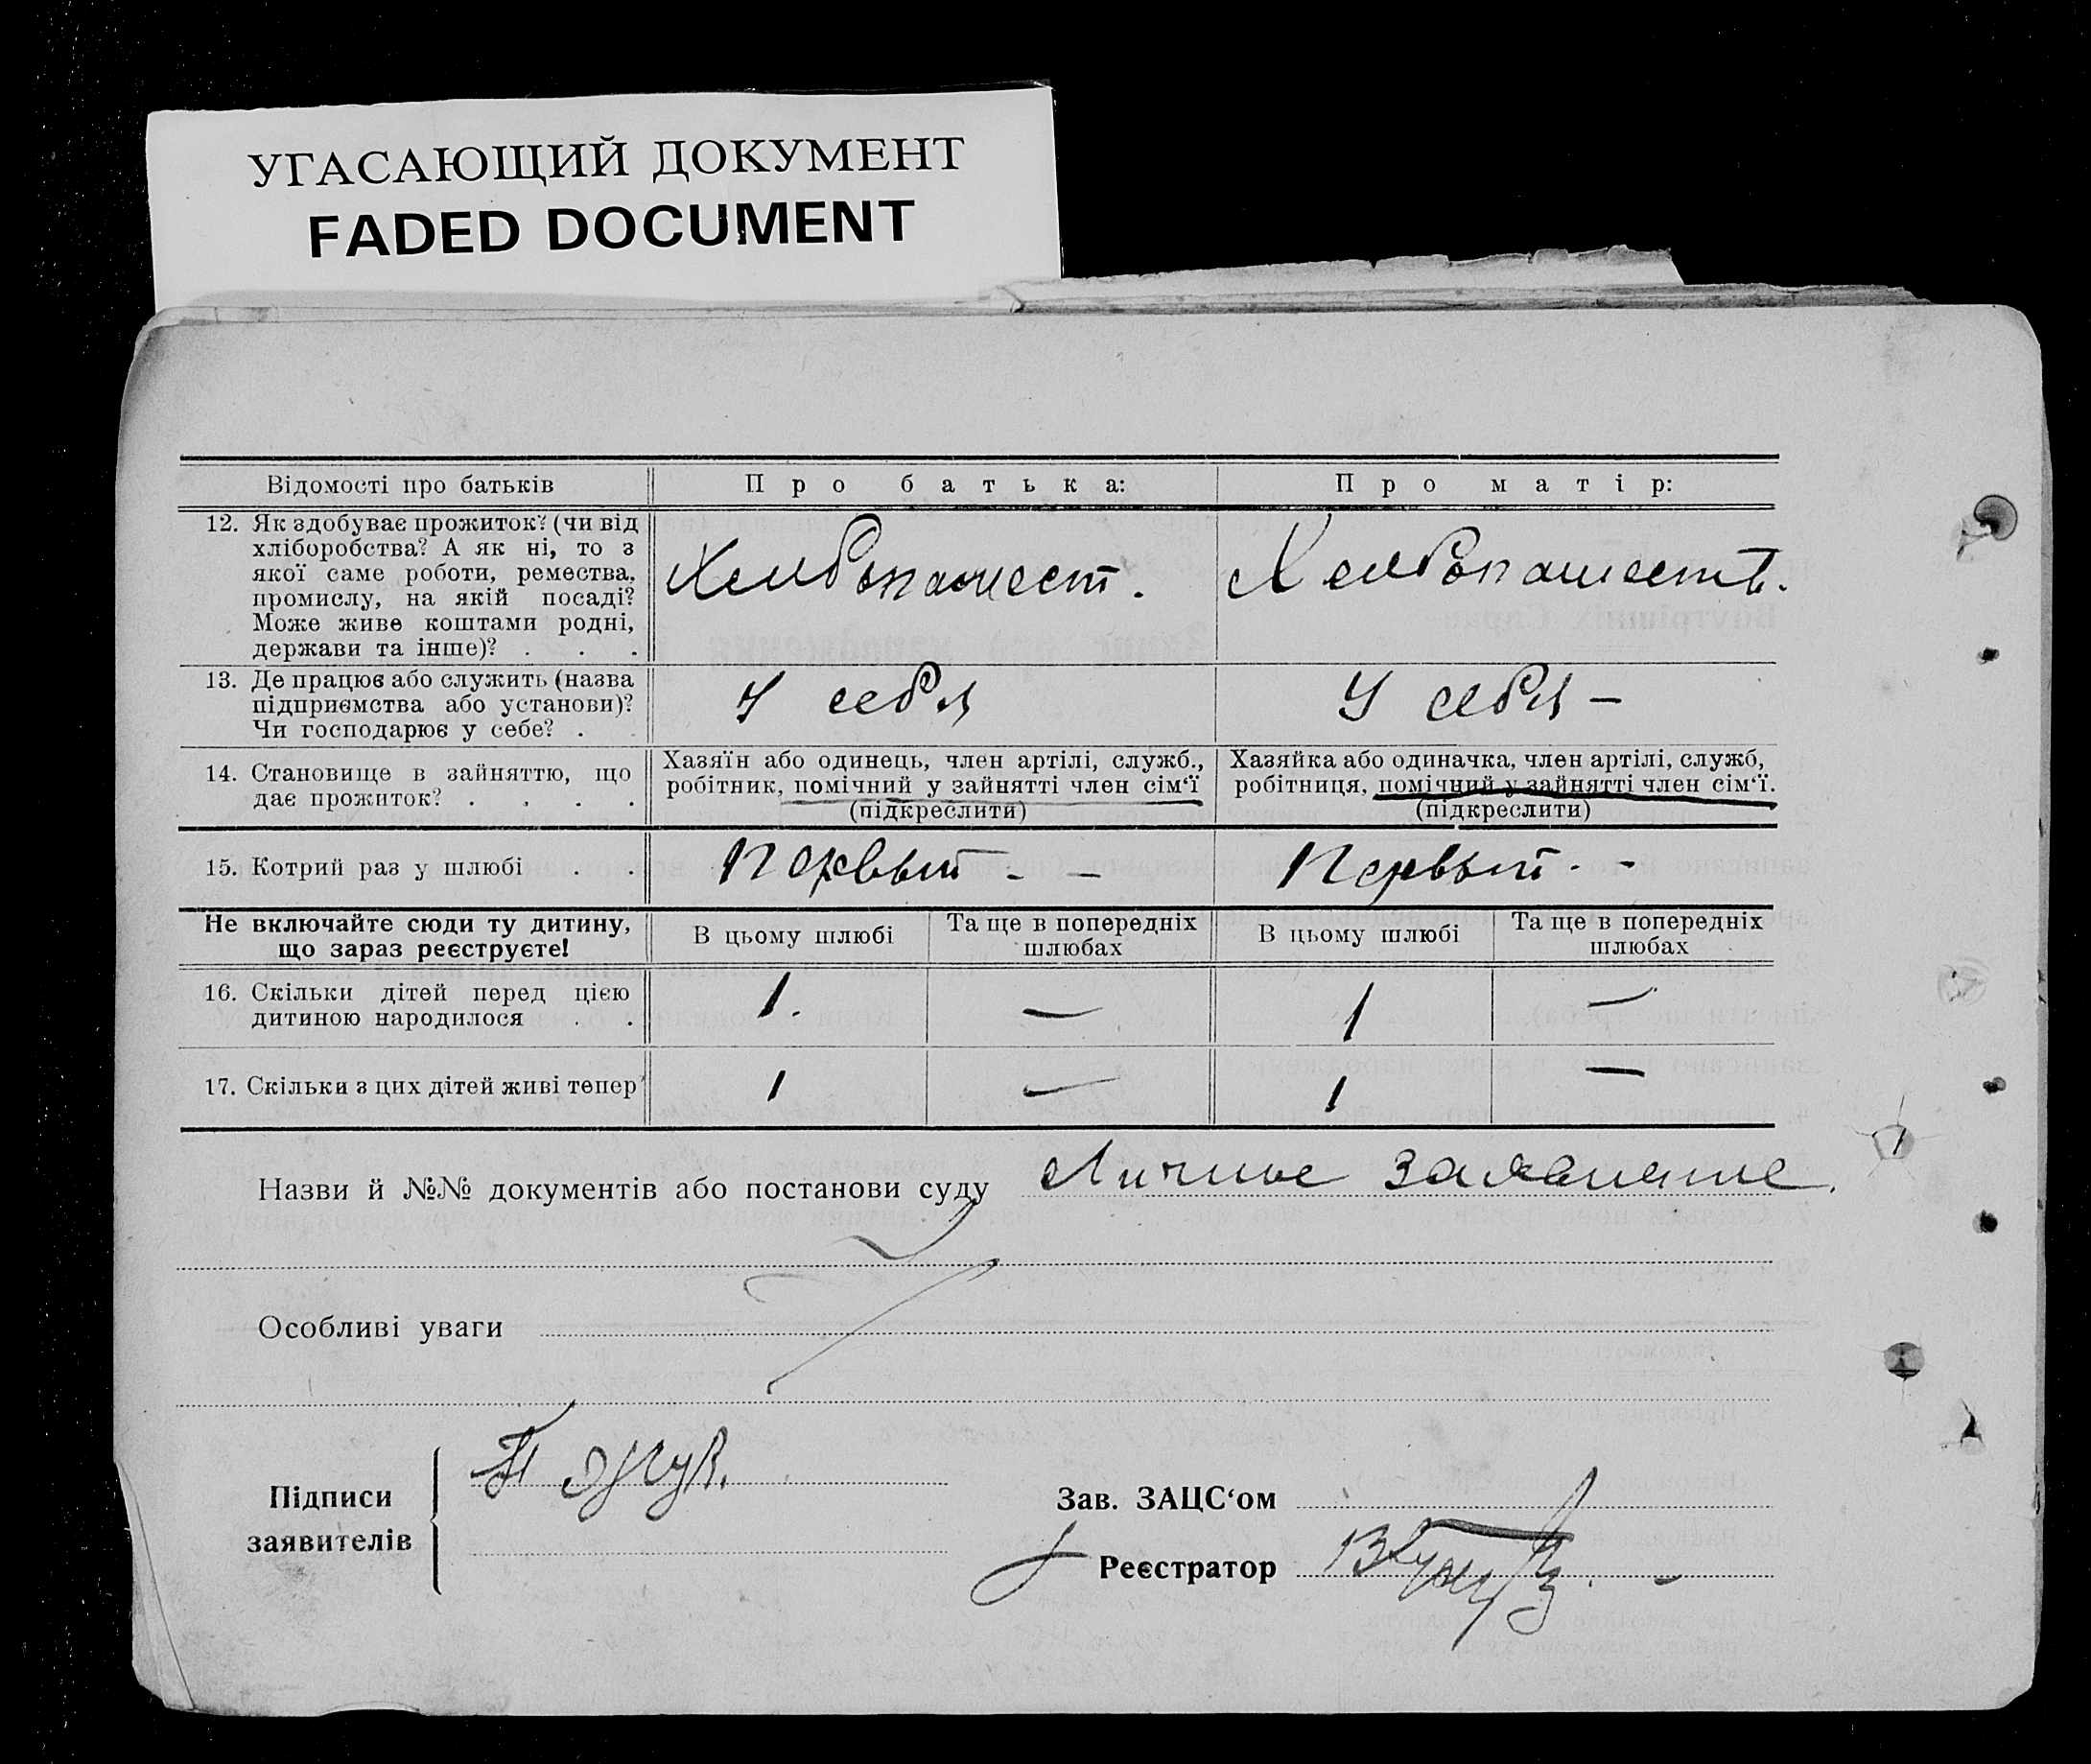 УГАСАЮЩИЙ ДОКУМЕНТ
FADED DOCUMENT
Відомості про батьків
Про батька:
Про матір:
12. Як здобуває прожиток? (чи від
хліборобства? А як ні, то з
якої саме роботи, ремества,
промислу, на якій посаді?
Може живе коштами родні,
держави та інше)? . . .
Хлебопашест.
Хлебопашеств.
13. Де працює або служить (назва
підприємства або установи)?
Чи господарює у себе? .
У себя
У себя –
14. Становище в зайняттю, що
дає прожиток? . . . .
Хазяїн або одинець, член артілі, служб.,
робітник, помічний у зайнятті член сім'ї
(підкреслити)
Хазяйка або одиначка, член артілі, служб,
робітниця, помічний у зайнятті член сім'ї.
(підкреслити)
15. Котрий раз у шлюбі . .
Первый - -
Первый - -
Не включайте сюди ту дитину,
що зараз реєструєте!
В цьому шлюбі
Та ще в попередніх
шлюбах
В цьому шлюбі
Та ще в попередніх
шлюбах
16. Скільки дітей перед цією
дитиною народилося . .
1. — 1 —
17. Скільки з цих дітей живі тепер
1 — 1 —
Назви й №№ документів або постанови суду Личное заявление.
Особливі уваги
Підписи
заявителів
Зав. ЗАЦС'ом
Реєстратор